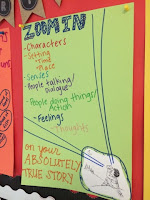 ZOOM IN
-Characters
-Setting
-Time
-Place
-Senses
-People talking/
Dialogue
-People doing things/
Action
-Feelings
-Thoughts
on your
ABSOLUTELY
TRUE STORY